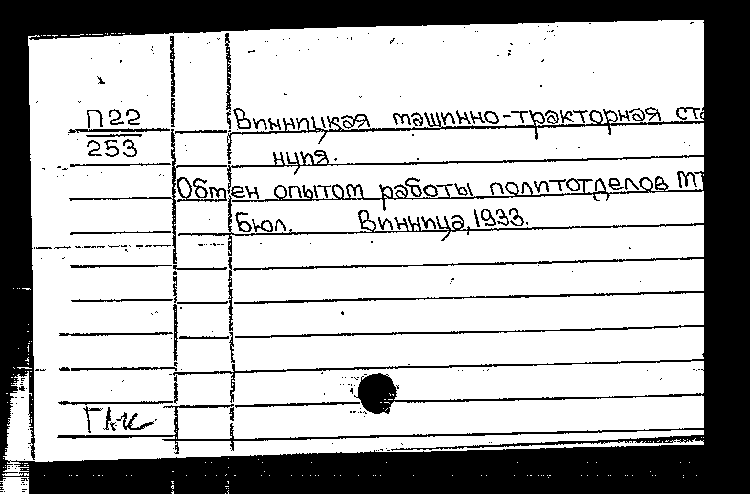 П22
253
Винницкая машинно-тракторная ста
нция.
Обмен опытом работы политотделов МТ
Бюл. Винница, 1933.